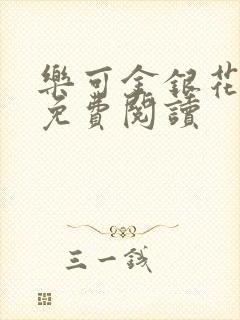 樂可金銀花
免費閱讀
三一錢